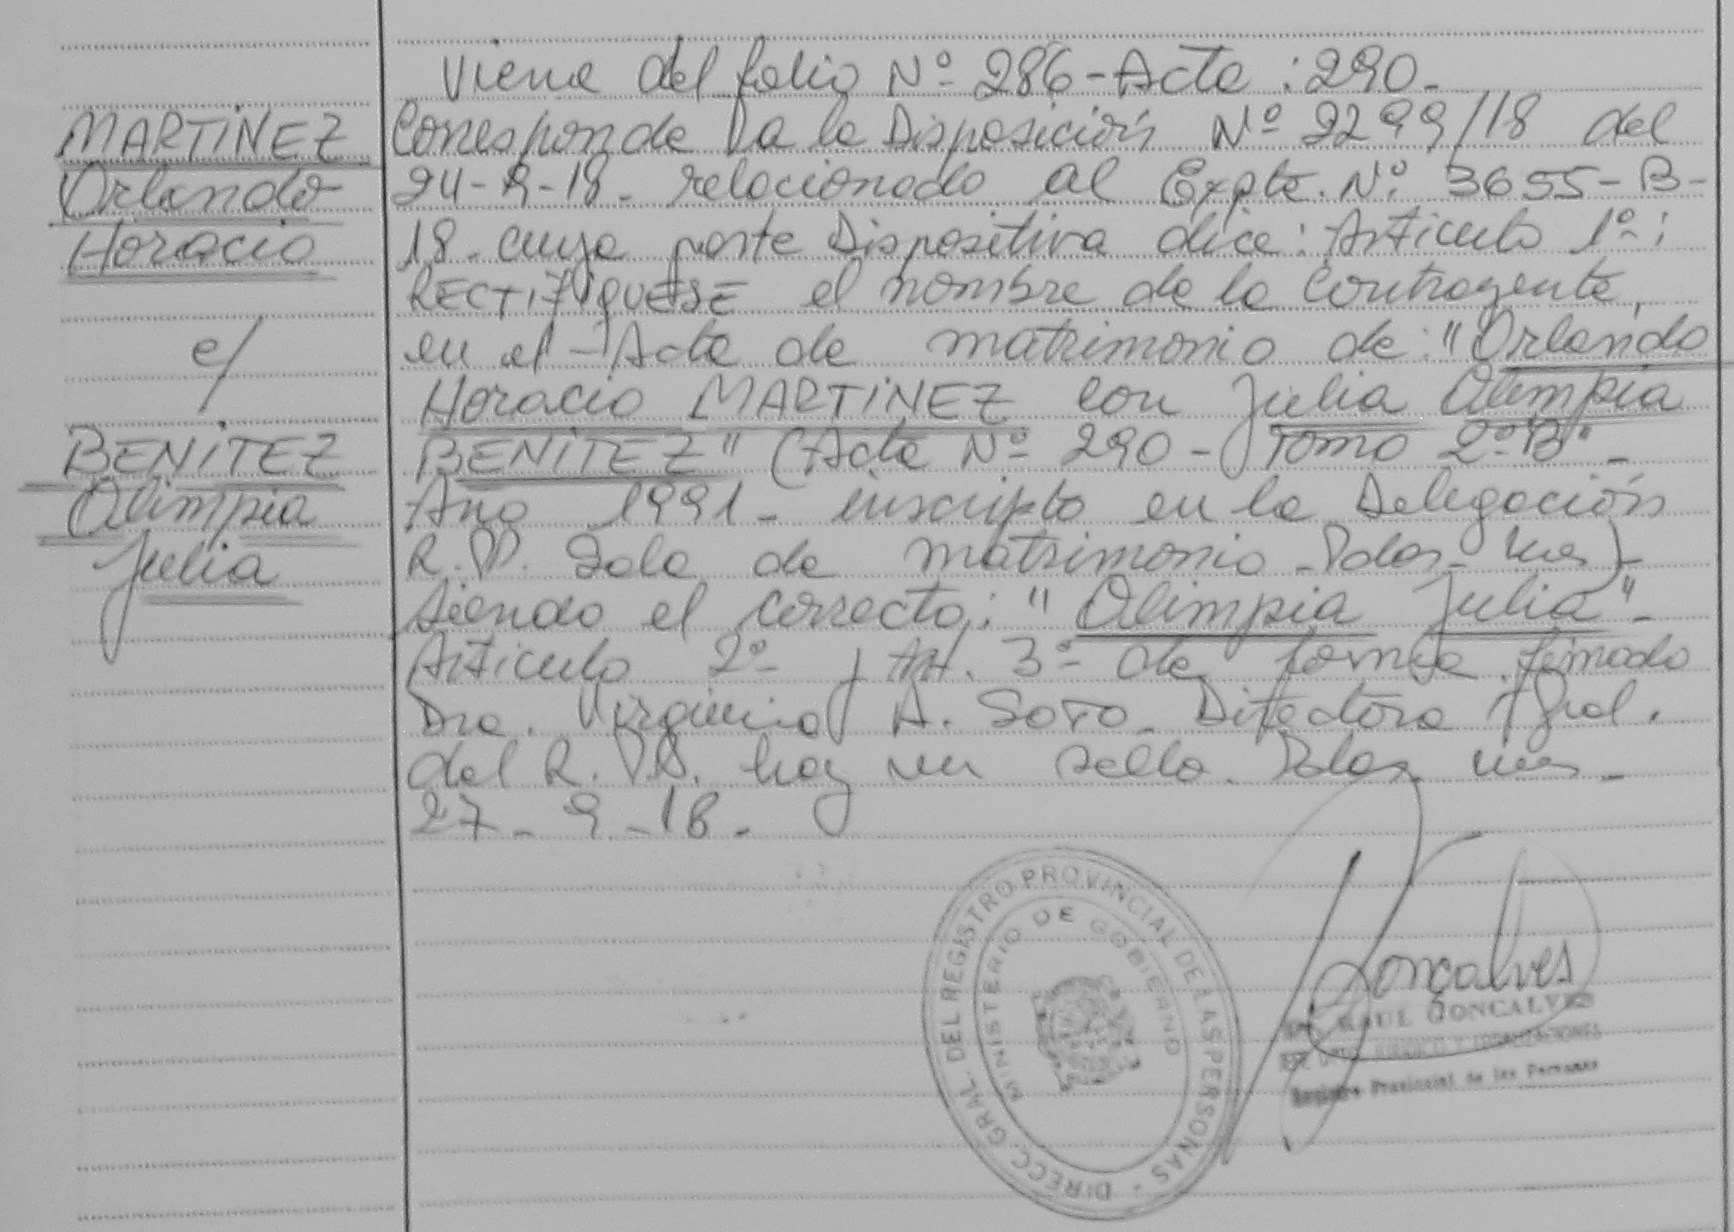 Viene del folio Nº 286 - Acta : 290 -
MARTINEZ
Orlando
Horacio
c/
BENITEZ
Olimpia
Julia
Corresponde a la Disposición Nº 2299/18 del
24-9-18 - relacionado al Expte. Nº 3655-B-
18 - cuya parte Dispositiva dice: Articulo 1º:
RECTIFIQUESE el nombre de la contrayente,
en el - Acta de matrimonio de: "Orlando
Horacio MARTINEZ con Julia Olimpia
BENITEZ" (Acta Nº 290 - Tomo 2º "B" -
Año 1991 - inscripto en la Delegación
R.P. Sala de matrimonio - Pdas - Mes)
siendo el correcto: "Olimpia Julia" -
Articulo 2º y Art. 3º de forma firmado
Dra. Virginia A. SOTO - Directora Gral.
del R.P.P. hay un sello. Pdas. Mes -
27 - 9 - 18 -
DIRECC. GRAL. DEL REGISTRO PROVINCIAL DE LAS PERSONAS -
MINISTERIO DE GOBIERNO
Goncalves
RAUL GONCALVES
Y LEGALIZACIONES
Registro Provincial de las Personas